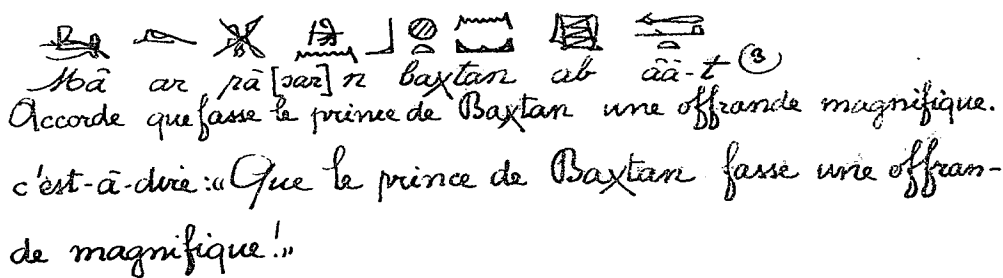 Mâ ar pā [sar] n baxtan ab āā-t (3)
Accorde que fasse le prince de Baxtan une offrande magnifique.
c'est-à-dire: «Que le prince de Baxtan fasse une offran-
de magnifique!»